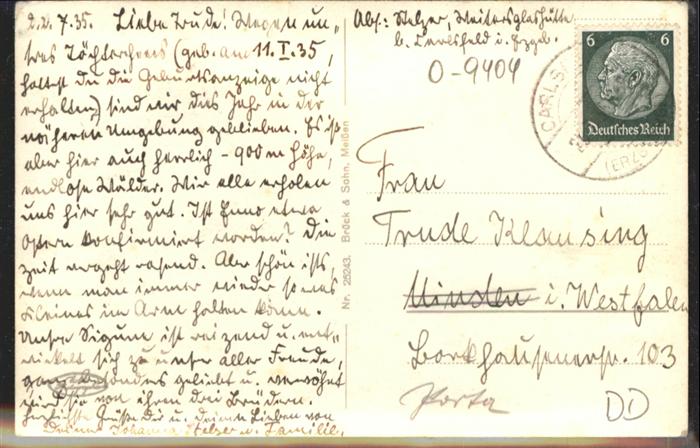 d. 22. 7. 35. Liebe Trude! Wegen un-
seres Töchterchens (geb. am 11. I. 35,
hattest du die Geburtsanzeige nicht
erhalten) sind wir dies Jahr in der
näheren Umgebung geblieben. Es ist
aber hier auch herrlich - 900 m Höhe,
endlose Wälder. Wir alle erholen
uns hier sehr gut. Ist Enno etwa
Ostern konfirmiert worden? Die
Zeit vergeht rasend. Aber schön ists,
wenn man immer wieder so was
Kleines im Arm halten kann.
Unsre Sigrun ist reizend u. ent-
wickelt sich zu unser aller Freude,
ganz besonders geliebt u. verwöhnt
wird sie von ihren drei Brüdern.
Herzlichste Grüße Dir u. deinen Lieben von
Deiner Johanna Melzer u. Familie.
Nr. 25243. Brück & Sohn, Meißen
Abs.: Melzer, Weitersglashütte
b. Carlsfeld i. Erzgeb.
O-9404
6 6
Deutsches Reich
CARLSF
(ERZG
Frau
Trude Klausing
Minden i. Westfalen
Borkhausenerstr. 103
Porta
DD